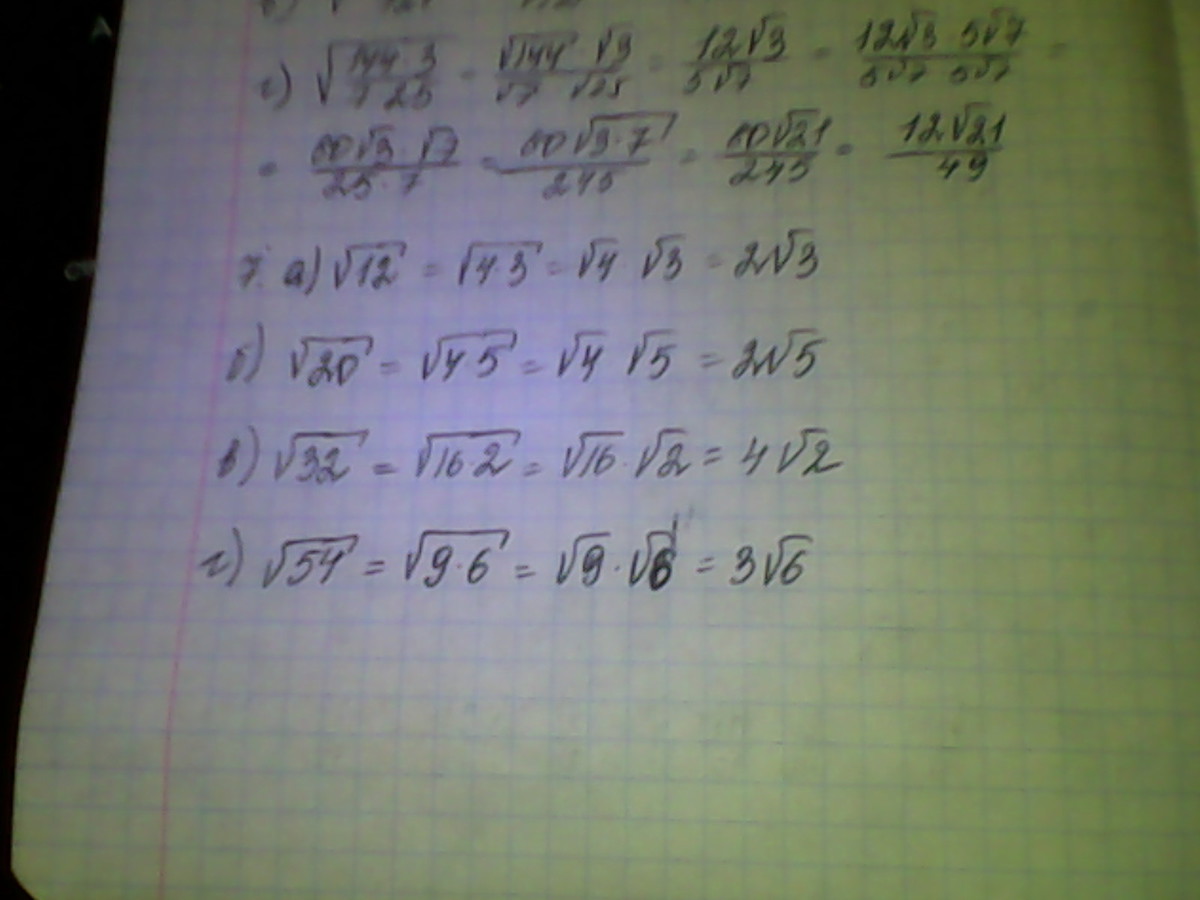 г) √(144·3 / 7·25) = √144·√3 / √7·√25 = 12√3 / 5√7 = 12√3·5√7 / 5√7·5√7 =
= 60√3·√7 / 25·7 = 60√3·7 / 245 = 60√21 / 245 = 12√21 / 49
7. а) √12 = √4·3 = √4·√3 = 2√3
б) √20 = √4·5 = √4·√5 = 2√5
в) √32 = √16·2 = √16·√2 = 4√2
г) √54 = √9·6 = √9·√6 = 3√6